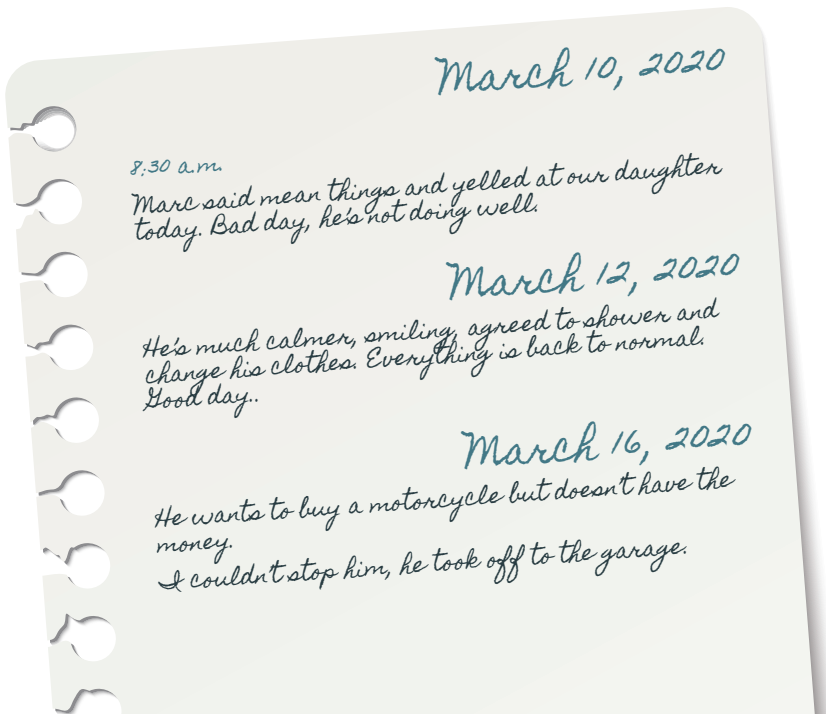 March 10, 2020
8:30 a.m.
Marc said mean things and yelled at our daughter
today. Bad day, he's not doing well.
March 12, 2020
He's much calmer, smiling, agreed to shower and
change his clothes. Everything is back to normal.
Good day..
March 16, 2020
He wants to buy a motorcycle but doesn't have the
money.
I couldn't stop him, he took off to the garage.